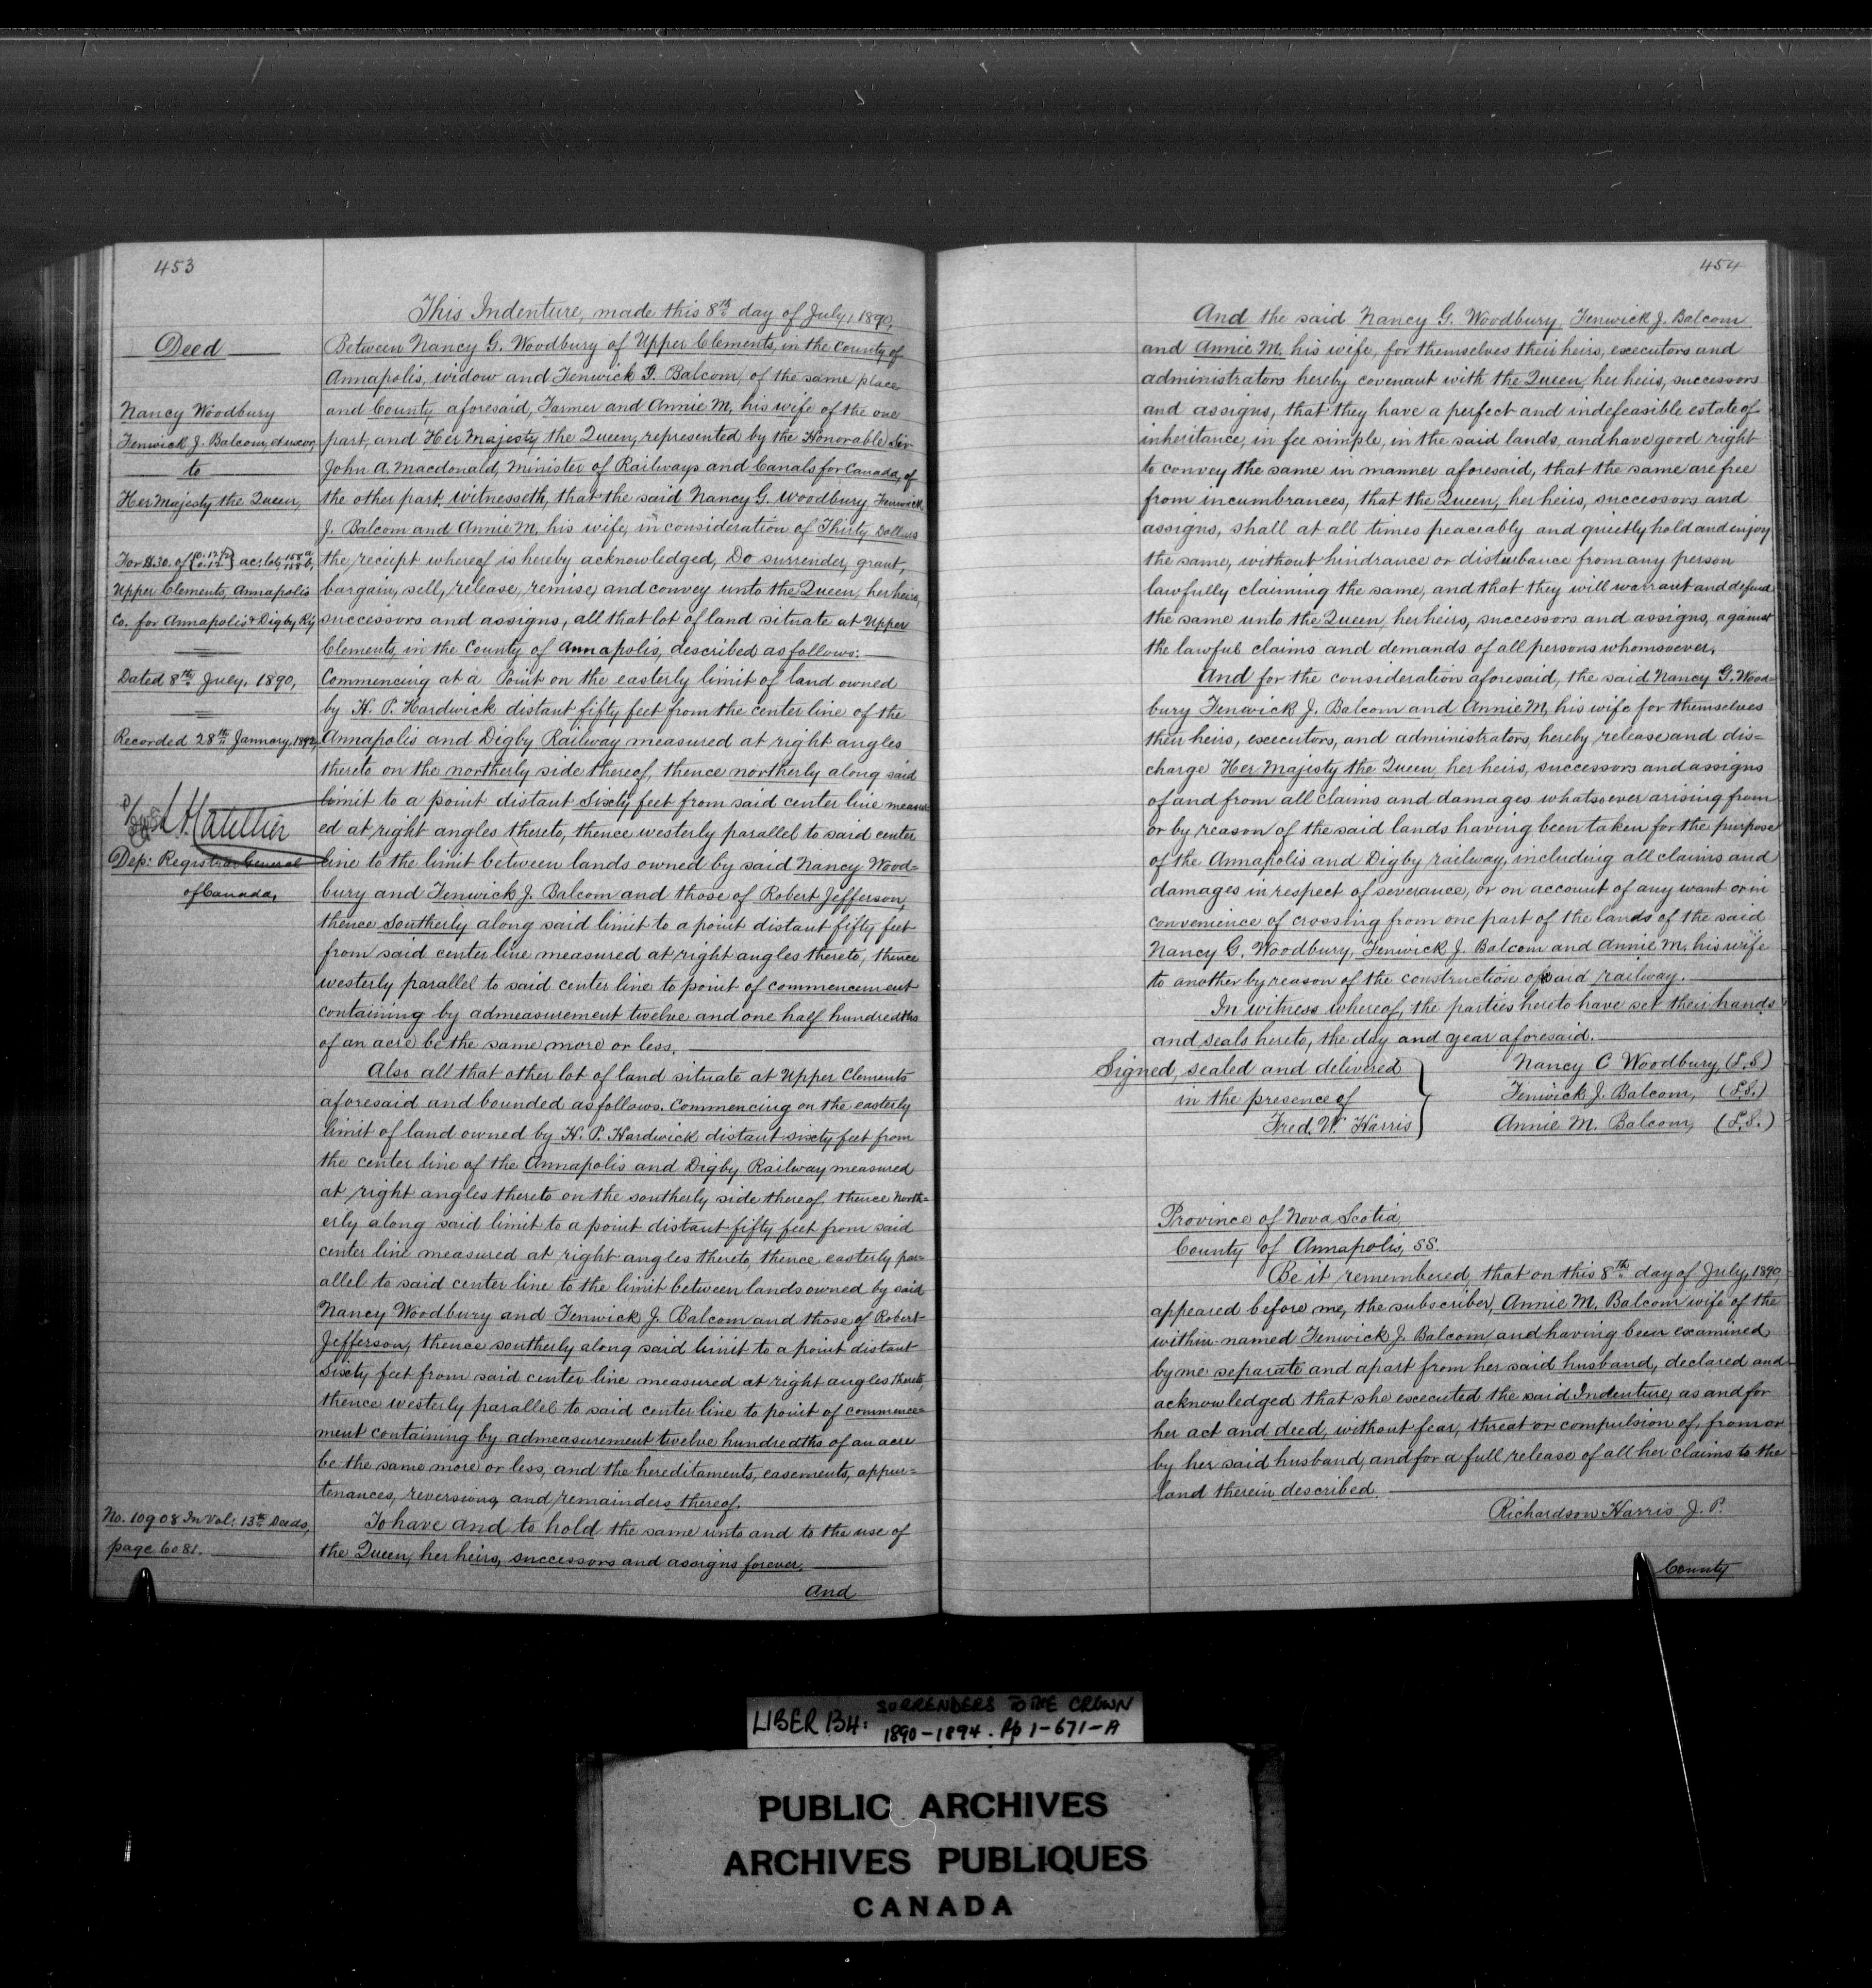 453
Deed
Nancy Woodbury
Fenwick J. Balcom, et uxor,
to
Her Majesty the Queen,
Upper Clements, Annapolis
Co. for Annapolis & Digby Ry
Dated 8th July, 1890,
Recorded 28th January, 1892,
Dep: Registrar General
of Canada,
No. 10908 In Vol: 13th Deeds,
page 6081.
This Indenture, made this 8th day of July, 1890,
Between Nancy G. Woodbury of Upper Clements, in the County of
Annapolis, widow and Fenwick J. Balcom, of the same place
and County aforesaid, Farmer and Annie M, his wife of the one
part, and Her Majesty the Queen, represented by the Honorable Sir
John A. Macdonald, Minister of Railways and Canals for Canada, of
the other part, witnesseth, that the said Nancy G. Woodbury, Fenwick
J. Balcom and Annie M. his wife, in consideration of Thirty Dollars
the receipt whereof is hereby acknowledged, Do surrender, grant,
bargain, sell, release, remise, and convey unto the Queen, her heirs,
successors and assigns, all that lot of land situate at Upper
Clements, in the County of Annapolis, described as follows:
Commencing at a Point on the easterly limit of land owned
by H. P. Hardwick distant fifty feet from the center line of the
Annapolis and Digby Railway measured at right angles
thereto on the northerly side thereof, thence northerly along said
limit to a point distant Sixty feet from said center line measur-
ed at right angles thereto, thence westerly parallel to said center
line to the limit between lands owned by said Nancy Wood=
bury and Fenwick J. Balcom and those of Robert Jefferson,
thence Southerly along said limit to a point distant fifty feet
from said center line measured at right angles thereto, thence
westerly parallel to said center line to point of commencement
containing by admeasurement twelve and one half hundredths
of an acre be the same more or less.
Also all that other lot of land situate at Upper Clements
aforesaid and bounded as follows. Commencing on the easterly
limit of land owned by H. P. Hardwick distant sixty feet from
the center line of the Annapolis and Digby Railway measured
at right angles thereto on the southerly side thereof thence North=
erly along said limit to a point distant fifty feet from said
center line measured at right angles thereto, thence easterly par=
allel to said center line to the limit between lands owned by said
Nancy Woodbury and Fenwick J. Balcom and those of Robert
Jefferson, thence southerly along said limit to a point distant
Sixty feet from said center line measured at right angles thereto,
thence westerly parallel to said center line to point of commence=
ment containing by admeasurement twelve hundredths of an acre
be the same more or less, and the hereditaments, easements, appur=
tenances, reversions, and remainders thereof.
To have and to hold the same unto and to the use of
the Queen, her heirs, successors and assigns forever.
And
454
And the said Nancy G. Woodbury Fenwick J. Balcom
and Annie M. his wife, for themselves their heirs, executors and
administrators hereby covenant with the Queen, her heirs, successors
and assigns, that they have a perfect and indefeasible estate of
inheritance, in fee simple, in the said lands, and have good right
to convey the same in manner aforesaid, that the same are free
from incumbrances, that the Queen, her heirs, successors and
assigns, shall at all times peaceably and quietly hold and enjoy
the same, without hindrance or disturbance from any person
lawfully claiming the same, and that they will warrant and defend
the same unto the Queen, her heirs, successors and assigns, against
the lawful claims and demands of all persons whomsoever.
And for the consideration aforesaid, the said Nancy G. Wood=
bury Fenwick J. Balcom and Annie M, his wife for themselves
their heirs, executors, and administrators, hereby release and dis=
charge Her Majesty the Queen, her heirs, successors and assigns
of and from all claims and damages whatsoever arising from
or by reason of the said lands having been taken for the purpose
of the Annapolis and Digby railway, including all claims and
damages in respect of severance, or on account of any want or in
convenience of crossing from one part of the lands of the said
Nancy G. Woodbury, Fenwick J. Balcom and Annie M. his wife
to another by reason of the construction of said railway.
In witness whereof, the parties hereto have set their hands
and seals hereto, the day and year aforesaid.
Signed, sealed and delivered
in the presence of
Fred. W. Harris
Nancy C Woodbury, (L.S)
Fenwick J. Balcom, (L.S.)
Annie M. Balcom, (L.S.)
Province of Nova Scotia,
County of Annapolis, SS.
Be it remembered, that on this 8th day of July, 1890,
appeared before me, the subscriber, Annie M. Balcom wife of the
within named Fenwick J. Balcom and having been examined
by me separate and apart from her said husband, declared and
acknowledged that she executed the said Indenture, as and for
her act and deed, without fear, threat or compulsion of, from or
by her said husband, and for a full release of all her claims to the
land therein described
Richardson Harris J. P.
County
LIBER 134: SURRENDERS TO THE CROWN
1890-1894. Pp 1-671-A
PUBLIC ARCHIVES
ARCHIVES PUBLIQUES
CANADA